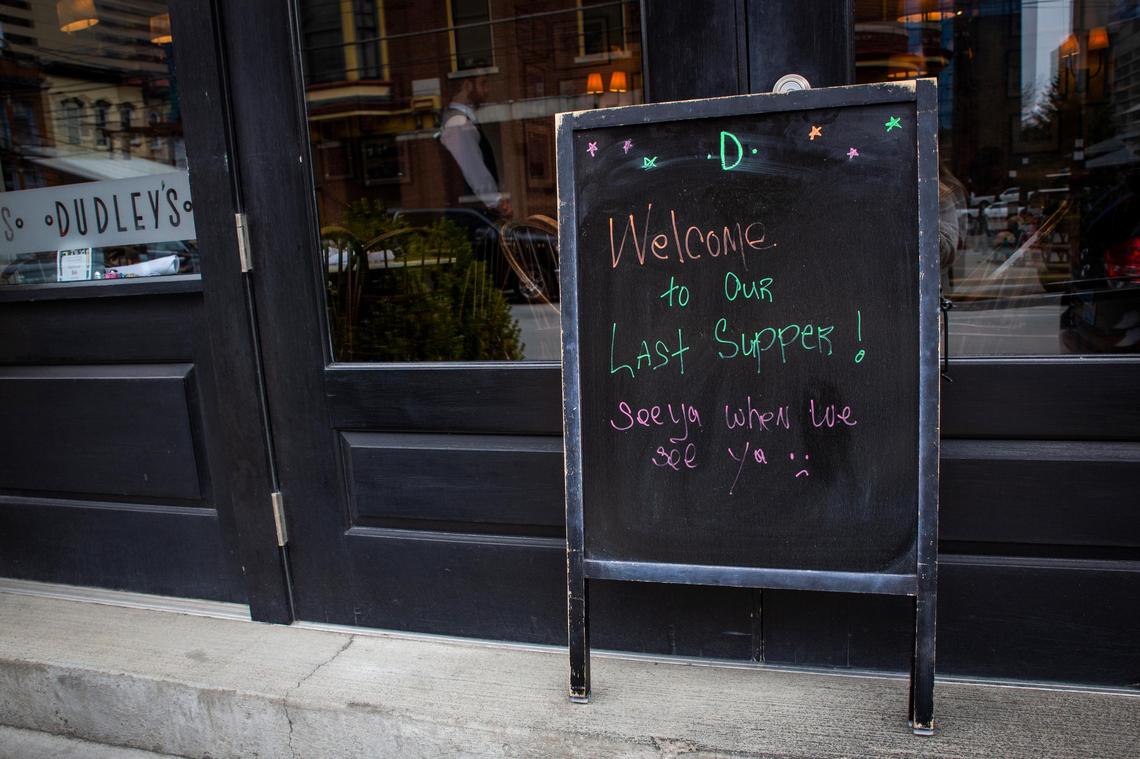 S
DUDLEY'S
·D·
Welcome
to Our
Last Supper!
See ya when we
see ya :(